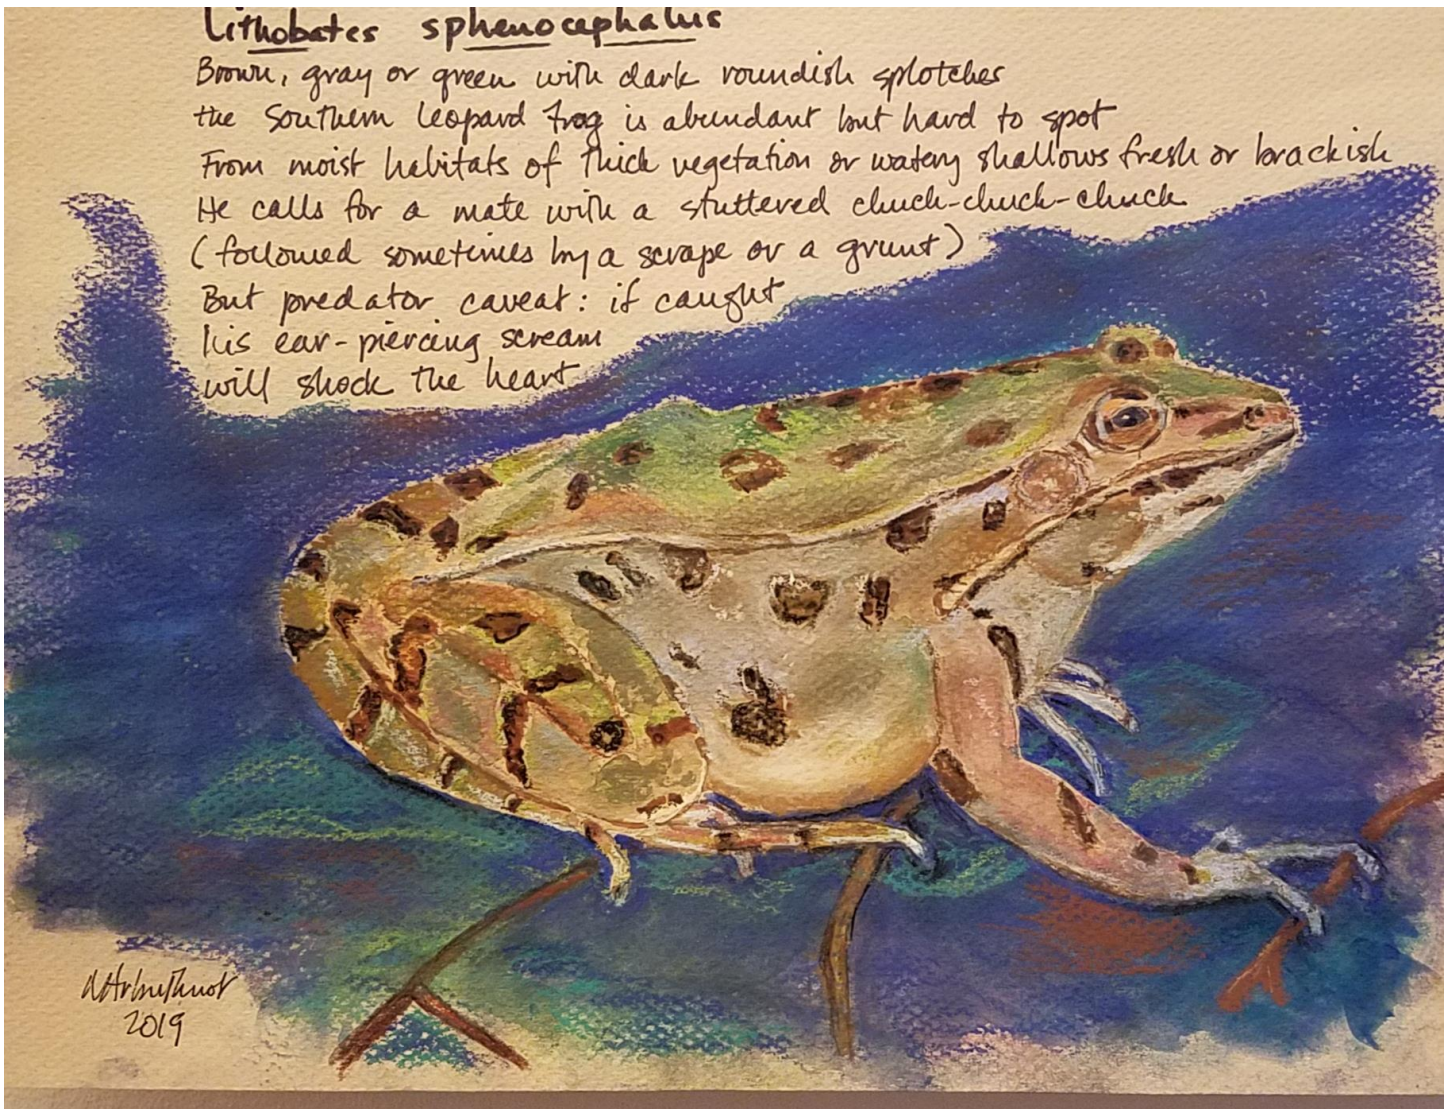 Lithobates sphenocephalus
Brown, gray or green with dark roundish splotches
the Southern Leopard Frog is abundant but hard to spot
From moist habitats of thick vegetation or watery shallows fresh or brackish
He calls for a mate with a stuttered chuck-chuck-chuck
(followed sometimes by a scrape or a grunt)
But predator caveat: if caught
his ear-piercing scream
will shock the heart
2019